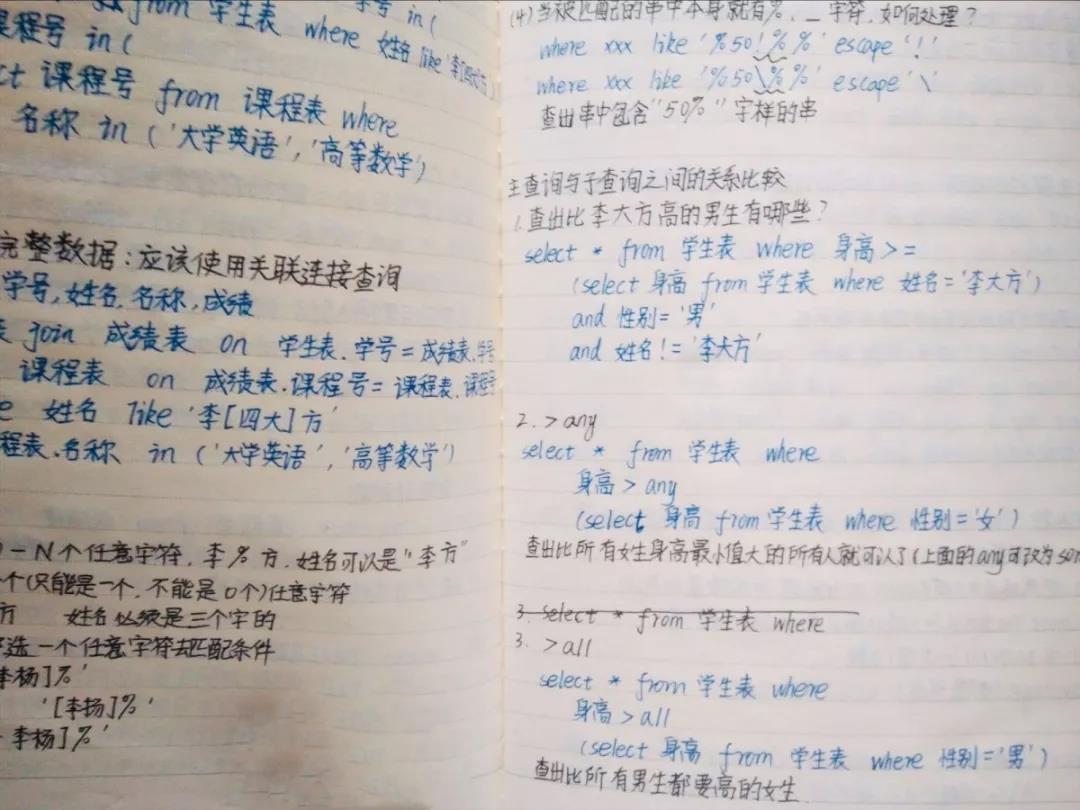 from 学生表 where 姓名 like '李[四大]方')
课程号 in(
ct 课程号 from 课程表 where
名称 in ('大学英语','高等数学')
完整数据:应该使用关联连接查询
学号,姓名,名称,成绩
表 join 成绩表 on 学生表.学号=成绩表.学号
课程表 on 成绩表.课程号=课程表.课程号
e 姓名 like '李[四大]方'
程表.名称 in ('大学英语','高等数学')
-N个任意字符,李%方,姓名可以是"李方"
个(只能是一个,不能是0个)任意字符
方 姓名必须是三个字的
选一个任意字符去匹配条件
李杨]%'
'[李杨]%'
李杨]%'
(4)当被匹配的串中本身就有%、_字符,如何处理?
where xxx like '%50!%%' escape '!'
where xxx like '%50\%%' escape '\'
查出串中包含"50%"字样的串
主查询与子查询之间的关系比较
1.查出比李大方高的男生有哪些?
select * from 学生表 where 身高>=
(select 身高 from 学生表 where 姓名='李大方')
and 性别='男'
and 姓名!='李大方'
2. >any
select * from 学生表 where
身高>any
(select 身高 from 学生表 where 性别='女')
查出比所有女生身高最小值大的所有人就可以了(上面的any可改为som
3. select * from 学生表 where
3. >all
select * from 学生表 where
身高>all
(select 身高 from 学生表 where 性别='男')
查出比所有男生都要高的女生